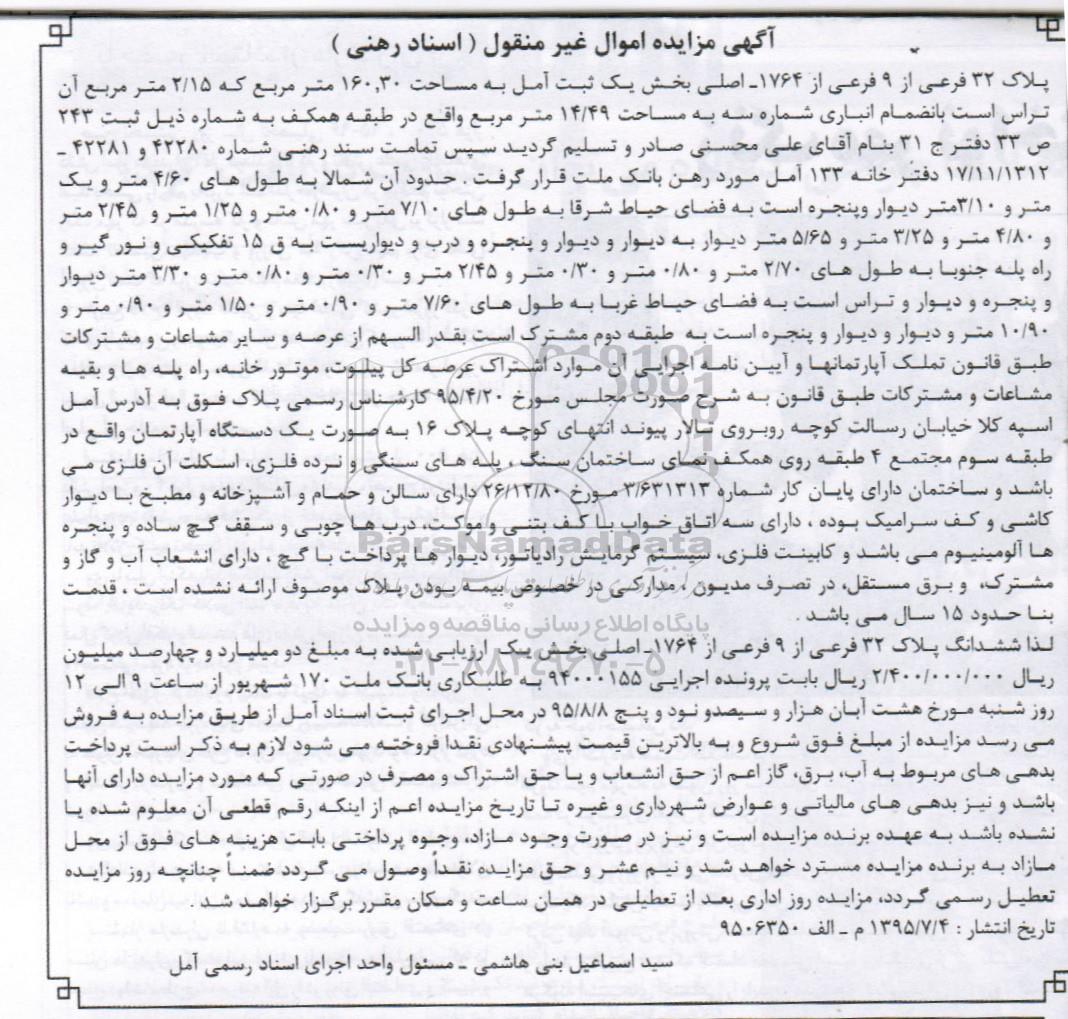 آگهی مزایده اموال غیر منقول ( اسناد رهنی )
پلاک ۳۲ فرعی از ۹ فرعی از ۱۷۶۴ـ اصلی بخش یک ثبت آمل به مساحت ۱۶۰.۳۰ متر مربع که ۲/۱۵ متر مربع آن
تراس است بانضمام انباری شماره سه به مساحت ۱۴/۴۹ متر مربع واقع در طبقه همکف به شماره ذیل ثبت ۲۴۳
ص ۳۲ دفتر ج ۳۱ بنام آقای علی محسنی صادر و تسلیم گردید سپس تمامت سند رهنی شماره ۴۲۲۸۰ و ۴۲۲۸۱ ـ
۱۷/۱۱/۱۳۱۲ دفتر خانه ۱۳۳ آمل مورد رهن بانک ملت قرار گرفت حدود آن شمالا به طول های ۴/۶۰ متر و یک
متر و ۳/۱۰متر دیوار وپنجره است به فضای حیاط شرقا به طول های ۷/۱۰ متر و ۰/۸۰ متر و ۱/۲۵ متر و ۲/۴۵ متر
و ۴/۸۰ متر و ۳/۲۵ متر و ۵/۶۵ متر دیوار به دیوار و دیوار و پنجره و درب و دیواریست به ق ۱۵ تفکیکی و نور گیر و
راه پله جنوبا به طول های ۲/۷۰ متر و ۰/۸۰ متر و ۰/۳۰ متر و ۲/۴۵ متر و ۰/۳۰ متر و ۰/۸۰ متر و ۳/۳۰ متر دیوار
و پنجره و دیوار و تراس است به فضای حیاط غربا به طول های ۷/۶۰ متر و ۰/۹۰متر و ۱/۵۰ متر و ۰/۹۰ متر و
۱۰/۹۰ متر و دیوار و دیوار و پنجره است به طبقه دوم مشترک است بقدر السهم از عرصه و سایر مشاعات و مشترکات
طبق قانون تملک آپارتمانها و آیین نامه اجرایی آن موارد اشتراک عرصه کل پیلوت، موتور خانه، راه پله ها و بقیه
مشاعات و مشترکات طبق قانون به شرح صورت مجلس مورخ ۹۵/۴/۲۰ کارشناس رسمی پلاک فوق به آدرس آمل
اسپه کلا خیابان رسالت کوچه روبروی تالار پیوند انتهای کوچه پلاک ۱۶ به صورت یک دستگاه آپارتمان واقع در
طبقه سوم مجتمع ۴ طبقه روی همکف نمای ساختمان سنگ ، پله های سنگی و نرده فلزی، اسکلت آن فلزی می
باشد و ساختمان دارای پایان کار شماره ۳/۶۳۱۳۱۳ مورخ ۲۶/۱۲/۸۰ دارای سالن و حمام و آشپزخانه و مطبخ با دیوار
کاشی و کف سرامیک بوده ، دارای سه اتاق خواب با کف بتنی و موکت، درب ها چوبی و سقف گچ ساده و پنجره
ها آلومینیوم می باشد و کابینت فلزی، سیستم گرمایش رادیاتور، دیوار ها پرداخت با گچ ، دارای انشعاب آب و گاز و
مشترک، و برق مستقل، در تصرف مدیون ، مدارکی در خصوص بیمه بودن پلاک موصوف ارائه نشده است ، قدمت
بنا حدود ۱۵ سال می باشد .
لذا ششدانگ پلاک ۳۲ فرعی از ۹ فرعی از ۱۷۶۴ـ اصلی بخش یک ارزیابی شده به مبلغ دو میلیارد و چهارصد میلیون
ریال ۲/۴۰۰/۰۰۰/۰۰۰ ریال بابت پرونده اجرایی ۹۴۰۰۰۱۵۵ به طلبکاری بانک ملت ۱۷۰ شهریور از ساعت ۹ الی ۱۲
روز شنبه مورخ هشت آبان هزار و سیصدو نود و پنج ۹۵/۸/۸ در محل اجرای ثبت اسناد آمل از طریق مزایده به فروش
می رسد مزایده از مبلغ فوق شروع و به بالاترین قیمت پیشنهادی نقدا فروخته می شود لازم به ذکر است پرداخت
بدهی های مربوط به آب، برق، گاز اعم از حق انشعاب و یا حق اشتراک و مصرف در صورتی که مورد مزایده دارای آنها
باشد و نیز بدهی های مالیاتی و عوارض شهرداری و غیره تا تاریخ مزایده اعم از اینکه رقم قطعی آن معلوم شده یا
نشده باشد به عهده برنده مزایده است و نیز در صورت وجود مازاد، وجوه پرداختی بابت هزینه های فوق از محل
مازاد به برنده مزایده مسترد خواهد شد. نیم عشر و حق مزایده نقداً وصول می گردد ضمناً چنانچه روز مزایده
تعطیل رسمی گردد، مزایده روز اداری بعد از تعطیلی در همان ساعت و مکان مقرر برگزار خواهد شد .
تاریخ انتشار : ۱۳۹۵/۷/۴ م ـ الف ۹۵۰۶۳۵۰
سید اسماعیل بنی هاشمی ـ مسئول واحد اجرای اسناد رسمی آمل
ParsNamadData
پایگاه اطلاع رسانی مناقصه و مزایده
۰۲۱-۸۸۳۴۹۶۷۰-۵